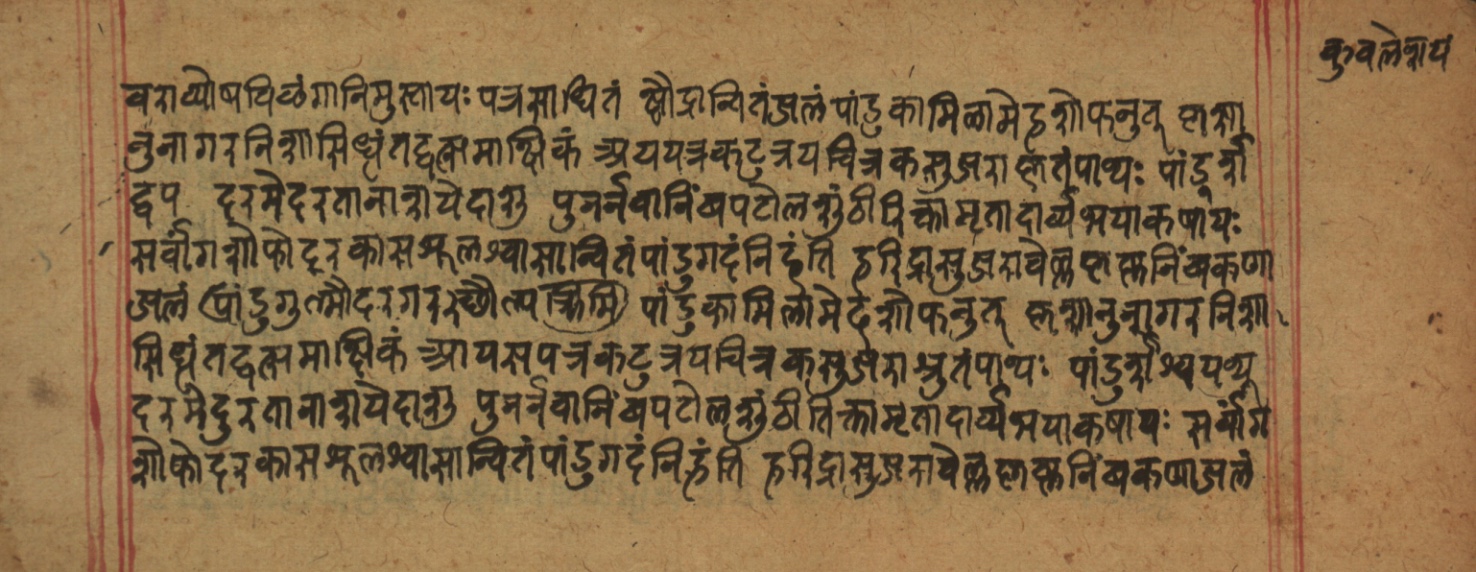 कुवलेशयं
वराव्योषविळंगानिमुस्तायः पत्रसाधितं क्षौद्रान्वितंजलं पांडुकामिलामेहशोफनुत् कृशा
नुनागरनिशासिध्धंतद्वत्समाक्षिकं अययपत्रकटुत्रयचित्रकसुजरा पाथ्यः पांडुर्शो
द्वप दूरमेदूरतानाशयेदाशु पुनर्नवानिंबपटोलशुंठीतिक्तामृतादार्व्यभयाकषायः
सर्वांगशोफोदरकासशूलश्वासान्वितंपांडुगदंनिहंति हरिद्रासुजरावेल्ल निंबकणा
जलं पांडुगुल्मोदरगर पांडुकामिलामेदशोफनुत् कृशानुनागरनिशा
सिध्धंतद्वत्समाक्षिकं आयसपत्रकटुत्रयचित्रकसुजराश्रुतंपाथ्यः पांडुशोश्वयथू
दरमेदुरतानाशयेदाशु पुनर्नवानिंबपटोलशुंठीतिक्तामृतादार्व्यभयाकषायः सर्वांग
शोफोदरकासशूलश्वासान्वितंपांडुगदंनिहंति हरिद्रासुजरावेल्ल निंबकणाजलं